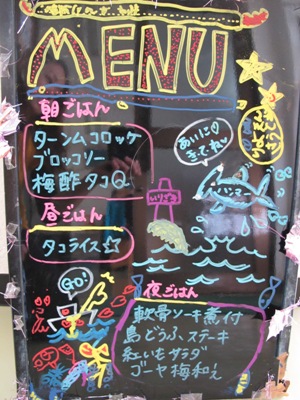 MENU
朝ごはん
ターンムコロッケ
ブロッコソー
梅酢タコ
昼ごはん
タコライス☆
あいに♡
きてねい
ハンマー
GO!
夜ごはん
軟骨ソーキ煮付
島どうふステーキ
紅いもサラダ
ゴーヤ梅和え